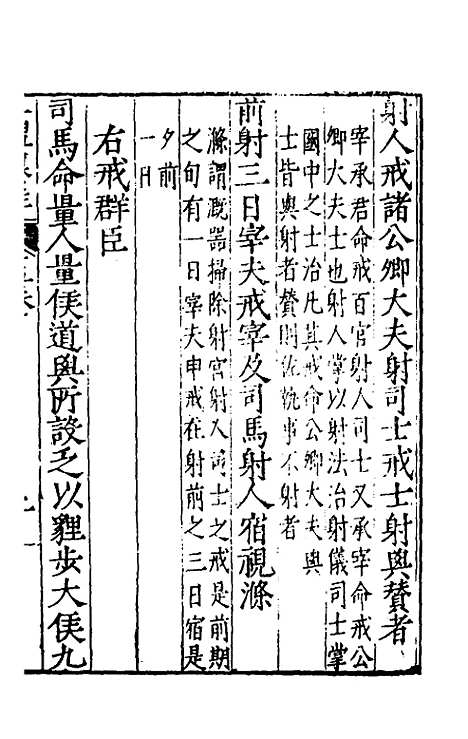 射人戒諸公卿大夫射司士戒士射與贊者
宰承君命戒百官射人司士又承宰命戒公
卿大夫士也射人掌以射法治射儀司士掌
國中之士治凡其戒命公卿大夫與
士皆與射者贊則佐執事不射者
前射三日宰夫戒宰及司馬射人宿視滌
滌謂溉器掃除射宮射人司士之戒是前期
之旬有一日宰夫申戒在射前之三日宿是
夕前
一日
右戒群臣
司馬命量人量侯道與所設乏以貍步大侯九